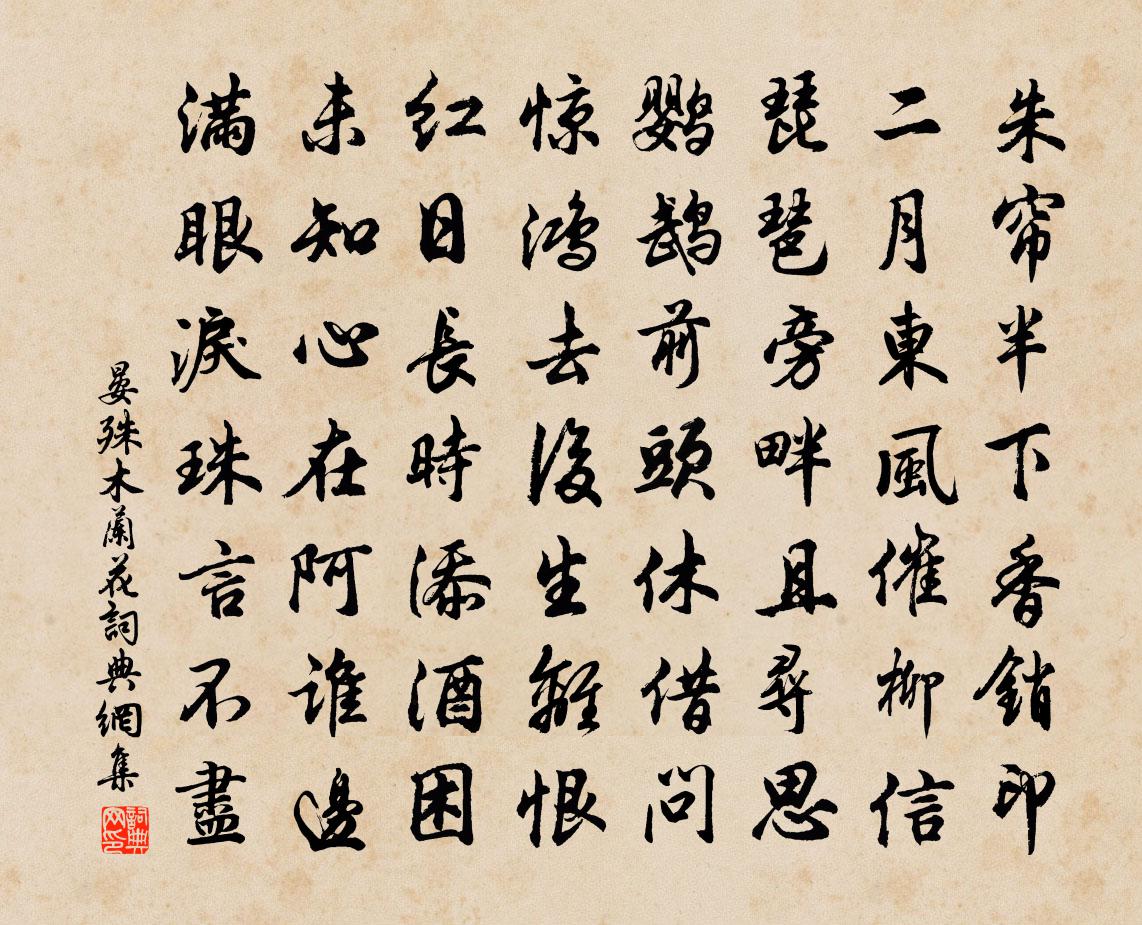 朱帘半下香銷印
二月東風催柳信
琵琶旁畔且尋思
鹦鹉前頭休借問
惊鸿去後生離恨
红日長時添酒困
未知心在阿誰邊
滿眼淚珠言不盡
晏殊木蘭花詞典網集
詞典网印